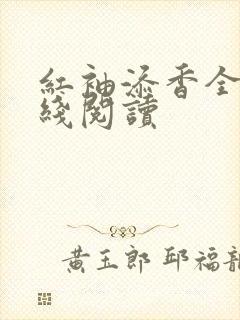 紅袖添香全
綫閱讀
黃玉郎 邱福龍